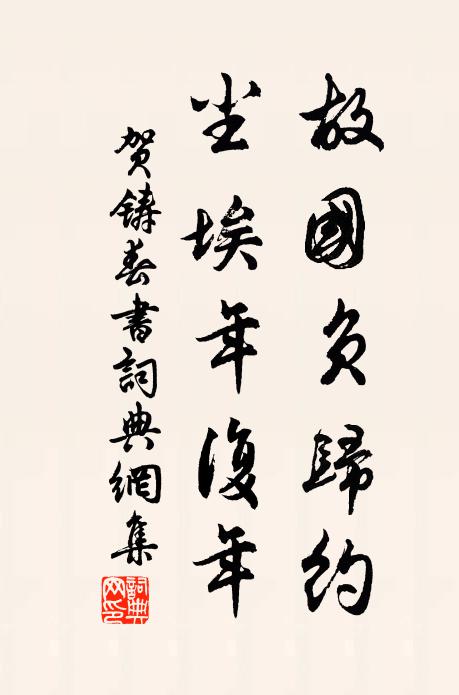 故國負歸約
尘埃年復年
贺鑄春書詞典網集
詞典網印